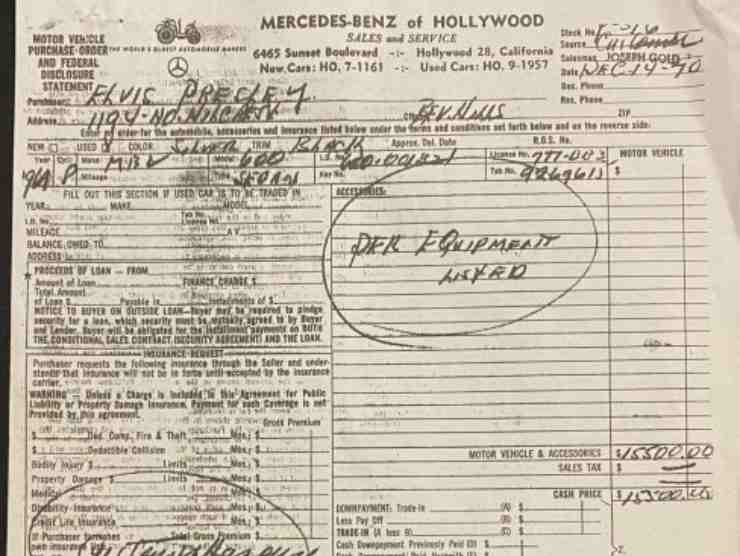 MERCEDES-BENZ of HOLLYWOOD
SALES and SERVICE
6465 Sunset Boulevard -:- Hollywood 28, California
New Cars: HO. 7-1161 -:- Used Cars: HO. 9-1957
MOTOR VEHICLE
PURCHASE ORDER
AND FEDERAL
DISCLOSURE
STATEMENT
THE WORLD'S OLDEST AUTOMOBILE MAKERS
Stock No.
Source Customer
Salesman JOSEPH GOLD
Date DEC 14-70
Bus. Phone
Res. Phone
Purchaser ELVIS PRESLEY
Address 1194-NO. HILLCREST City BEV. HILLS ZIP
Enter my order for the automobile, accessories and insurance listed below under the terms and conditions set forth below and on the reverse side:
NEW USED COLOR Silver TRIM Black Approx. Del. Date R.O.S. No.
Year Cyl Make MBZ Model 600 I.D. No. License No. MOTOR VEHICLE
1964 8 Mileage Type SEDAN Key No. Tab No. $
FILL OUT THIS SECTION IF USED CAR IS TO BE TRADED IN
ACCESSORIES:
YEAR MAKE MODEL
I.D. No. Tab No. License No.
MILEAGE A V
BALANCE OWED TO
ADDRESS
PER EQUIPMENT
LISTED
PROCEEDS OF LOAN — FROM
Amount of Loan FINANCE CHARGE $
Total Amount
of Loan $ Payable in Installments of $
NOTICE TO BUYER ON OUTSIDE LOAN—Buyer may be required to pledge
security for a loan, which security must be mutually agreed to by Buyer
and Lender. Buyer will be obligated for the installment payments on BOTH
THE CONDITIONAL SALES CONTRACT (SECURITY AGREEMENT) AND THE LOAN.
INSURANCE REQUEST
Purchaser requests the following insurance through the Seller and under-
stands that insurance will not be in force until accepted by the insurance
carrier.
WARNING — Unless a Charge is included in this Agreement for Public
Liability or Property Damage Insurance, Payment for such Coverage is not
Provided by this agreement.
Gross Premium
$ Ded. Comp, Fire & Theft Mos.; $
$ Deductible Collision Mos.; $
Bodily Injury $ Limits Mos.; $
Property Damage $ Limits Mos.; $
Medical Mos.; $
Disability Insurance Mos.; $
Credit Life Insurance Mos.; $
If Purchaser furnishes Total Gross Premium $
own insurance
MOTOR VEHICLE & ACCESSORIES $15500.00
SALES TAX $ —
CASH PRICE $15500.00
DOWNPAYMENT: Trade-in (A) $
Less Pay Off (B) $
TRADE-IN (A less B) (C) $
Cash Downpayment Previously Paid (D) $